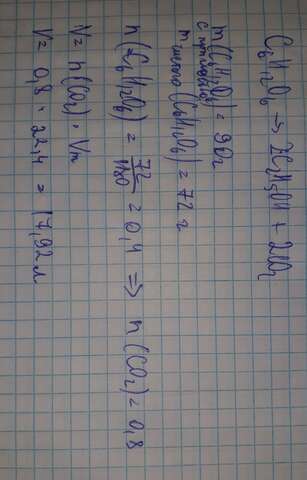 C₆H₁₂O₆ → 2C₂H₅OH + 2CO₂
m(C₆H₁₂O₆) = 90г
с примесью
m чистого (C₆H₁₂O₆) = 72 г
n(C₆H₁₂O₆) = 72/180 = 0,4 => n(CO₂) = 0,8
V = n(CO₂) · Vm
V = 0,8 · 22,4 = 17,92 л